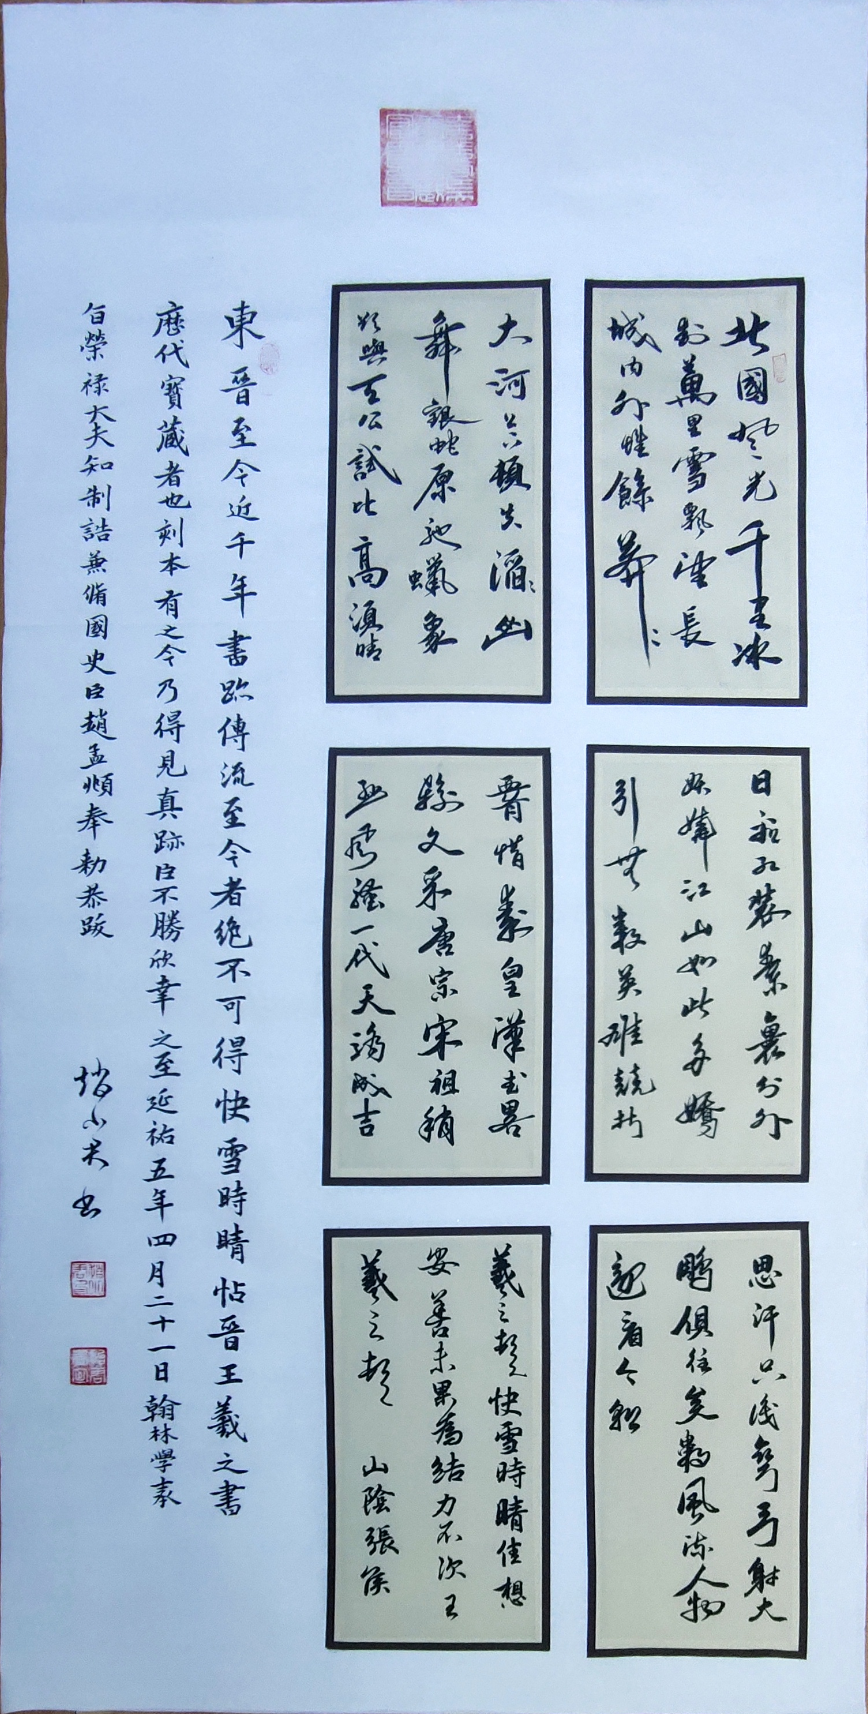 北國風光千里冰
封萬里雪飄望長
城內外唯餘莽〻
大河上下頓失滔〻山
舞銀蛇原馳蠟象
欲與天公試比高須晴
日看紅裝素裹分外
妖嬈江山如此多嬌
引無數英雄競折
腰惜秦皇漢武略
輸文采唐宗宋祖稍
遜風騷一代天驕成吉
思汗只識彎弓射大
鵰俱往矣數風流人物
還看今朝
羲之頓首快雪時晴佳想
安善未果為結力不次王
羲之頓首 山陰張侯
東晉至今近千年書跡傳流至今者絕不可得快雪時晴帖晉王羲之書
歷代寶藏者也刻本有之今乃得見真跡臣不勝欣幸之至延祐五年四月二十一日翰林學承
旨榮祿大夫知制誥兼脩國史臣趙孟頫奉勅恭跋